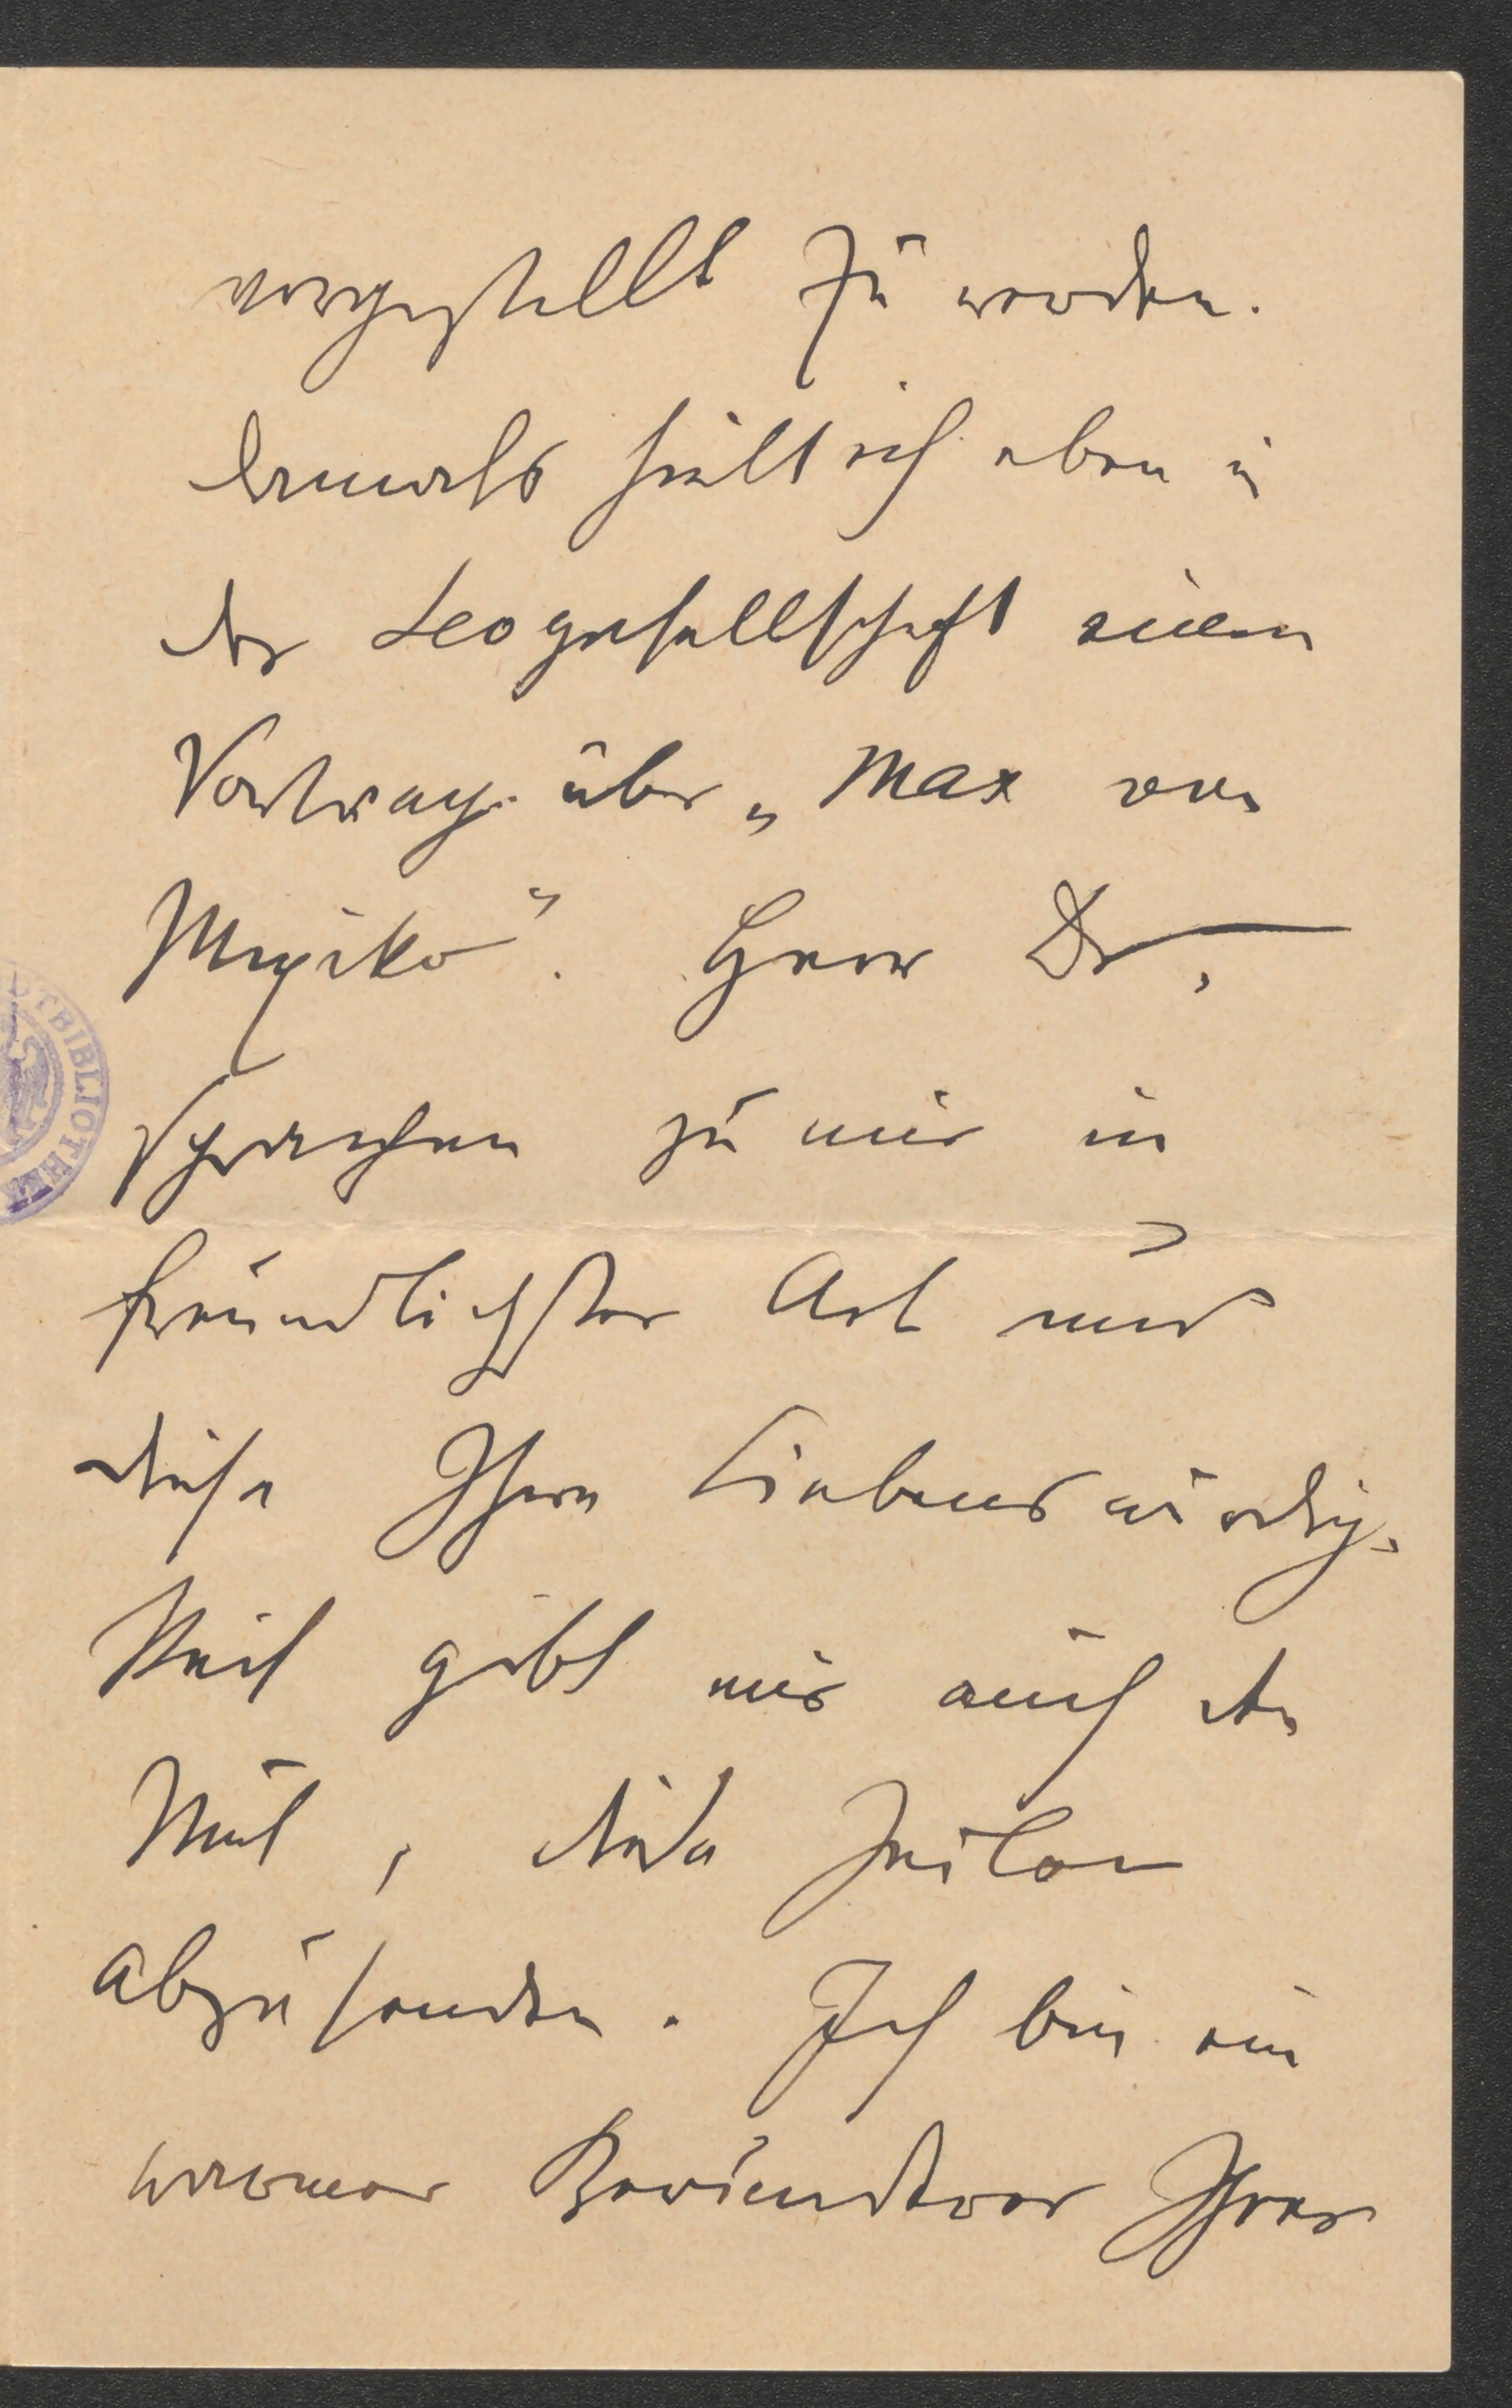 vorgestellt zu werden.
Damals hielt ich eben in
der Leogesellschaft einen
Vortrag über „Max von
Mexiko“. Herr Dr.
sprachen zu mir in
freundlichster Art und
diese Ihre Liebenswürdig-
keit gibt mir auch den
Mut, diese Zeilen
abzusenden. Ich bin ein
warmer Bewunderer Ihrer
TBIBLIOTHEK